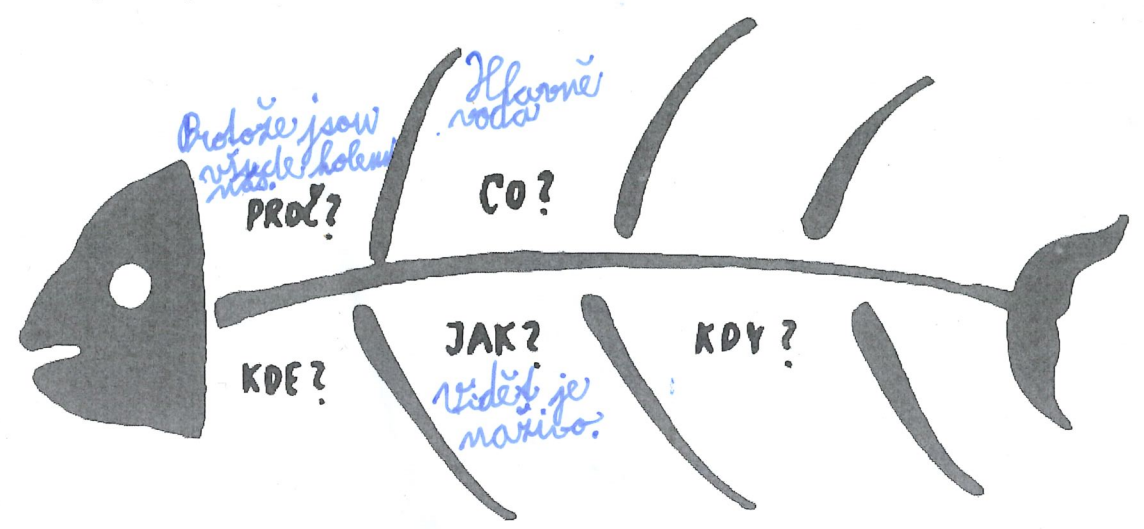 Protože jsou
všude kolem
nás.
PROČ?
Hlavně
voda
CO?
KDE?
JAK?
Vidět je
naživo.
KDY?